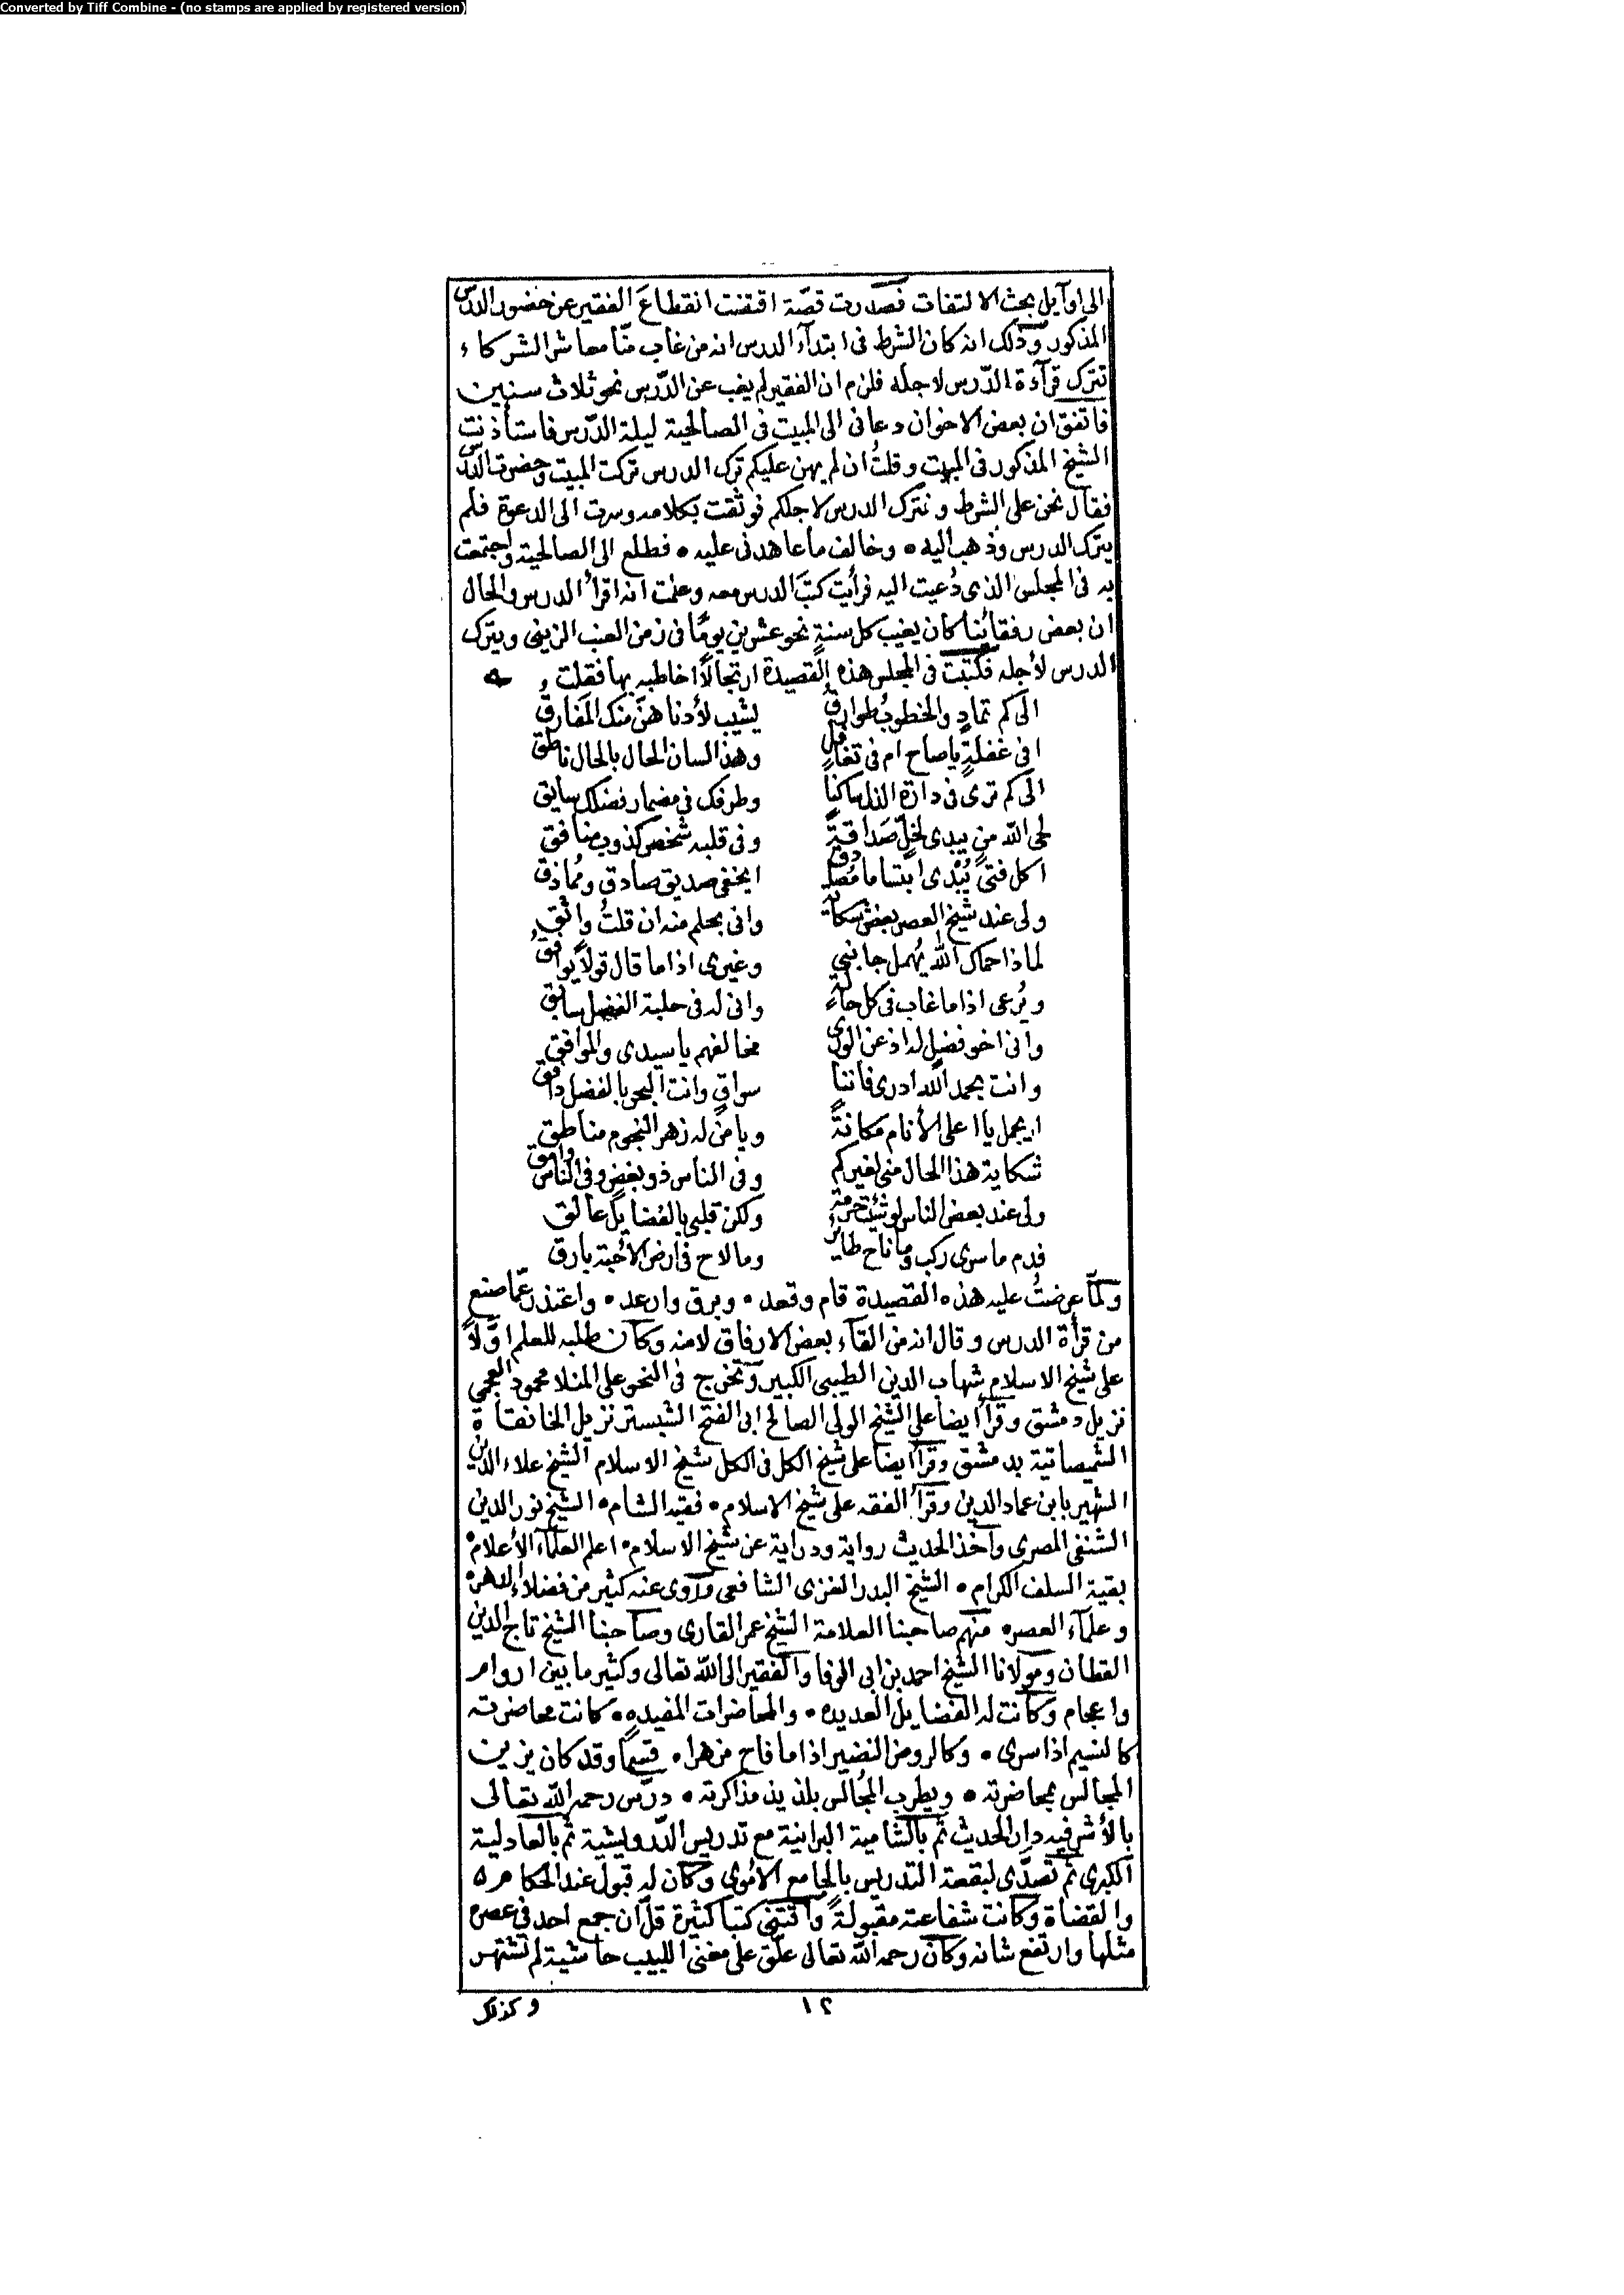 Converted by Tiff Combine - (no stamps are applied by registered version)
الى اوآيل بحث الالتفات فصدرت قصّة اقتضت انقطاعَ الفقير عن حضور الدرس
المذكور وذلك انه كان الشرط فى ابتدآء الدرس انه من غاب منّا معاشر الشركاء
تترك قرآءة الدّرس لاجله فلزم ان الفقير لم يغب عن الدّرس نحو ثلاث سنين
فاتفق ان بعض الاخوان دعانى الى المبيت فى الصالحية ليلة الدّرس فاستأذنت
الشيخ المذكور فى المبيت وقلتُ ان لم يهن عليكم ترك الدرس تركت المبيت وحضرت الدرس
فقال نحن على الشرط ونترك الدرس لاجلكم فوثقت بكلامه وسرت الى الدعوة فلم
يترك الدرس وذهب اليه • وخالف ما عاهدنى عليه • فطلع الى الصالحية واجتمعت
به فى المجلس الذى دُعيت اليه فرأيت كتبَ الدرس معه وعلمت انه اقرأ الدرس والحال
ان بعض رفقائنا كان يغيب كل سنةٍ نحو عشرين يومًا فى زمن العنب الزينى ويترك
الدرس لأجله فكتبت فى المجلس هذه القصيدة ارتجالًا اخاطبه بها فقلت
الى كم تمادٍ والخطوبُ طوارق يشيب لأدناهنّ منك المفارق
افى غفلةٍ يا صاح ام فى تغافلٍ وهذا لسان الحال بالحال ناطق
الى كم ترى فى دارة الذل ساكنًا وطرفك فى مضمار فضلك سابق
لحى الله من يبدى لخلٍّ صداقةً وفى قلبه شخص كذوب منافق
اكل فتىً يُبْدى ابتساما مُصادق ايخفى صديق صادق ومُماذق
ولى عند شيخ العصر بعض شكاية وانى بحلم منه ان قلتُ واثق
لماذا حماك الله يُهمل جانبى وغيرى اذا ما قال قولًا يوافق
ويُرعى اذا ما غاب فى كل حالة وانى له فى حلبة الفضل سابق
وانى اخو فضلٍ لداذ عن الورى مخالفهم يا سيدى والموافق
وانت بحمد الله ادرى فاننا سواقٍ وانت البحر بالفضل دافق
ايجمل يا اعلى الأنام مكانةً ويا من له زهر النجوم مناطق
شكاية هذا الحال منى لغيركم وفى الناس ذو بغض وفى الناس وامق
ولى عند بعض الناس لو شئت حرمةٌ ولكن قلبى بالفضايل عالق
فدم ما سرى ركب وما ناح طائر وما لاح فى ارض الأحبة بارق
ولمّا عرضتُ عليه هذه القصيدة قام وقعد • وبرق وارعد • واعتذر عمّا صنع
من قرأة الدرس وقال انه من القآء بعض الارفاق لا منه وكان طلبه للعلم اوّلًا
على شيخ الاسلام شهاب الدين الطيبى الكبير وتخرج فى النحو على المنلا محمود العجمى
نزيل دمشق وقرأ ايضا على الشيخ الولى الصالح ابى الفتح الشبستر نزيل الخانقاة
الشميصاتية بدمشق وقرأ ايضا على شيخ الكل فى الكل شيخ الاسلام الشيخ علاء الدين
الشهير بابن عماد الدين وقرأ الفقه على شيخ الاسلام • فقيه الشام • الشيخ نور الدين
الشنفى المصرى وآخذ الحديث رواية ودراية عن شيخ الاسلام • اعلم العلمآء الأعلام •
بقية السلف الكرام • الشيخ البدر الغزى الشافعى وروى عنه كثير من فضلاء الدهر •
وعلمآء العصر • منهم صاحبنا العلامة الشيخ عمر القارى وصاحبنا الشيخ تاج الدين
القطان ومولانا الشيخ احمد بن ابى الوفا والفقير الى الله تعالى وكثير ما بين اروام
واعجام وكانت له الفضايل العديده • والمحاضرات المفيده • كانت محاضرته
كالنسيم اذا سرى • وكالروض النضير اذا ما فاح مزهرا • قسمًا وقد كان يزين
المجالس بمحاضرته • ويطرب المُجالس بلذيذ مذاكرته • درّس رحمه الله تعالى
بالأشرفيه دار الحديث ثم بالشامية البرانية مع تدريس الدّرويشية ثم بالعادلية
الكبرى ثم تصدّى لبقعة التدريس بالجامع الاموى وكان له قبول عند الحكام
والقضاة وكانت شفاعته مقبولةً واقتنى كتبا كثيرة قلّ ان جمع احد فى عصره
مثلها وارتفع شانه وكان رحمه الله تعالى علّق على مغنى اللبيب حاشية لم تشتهر
١٢ وكذلك